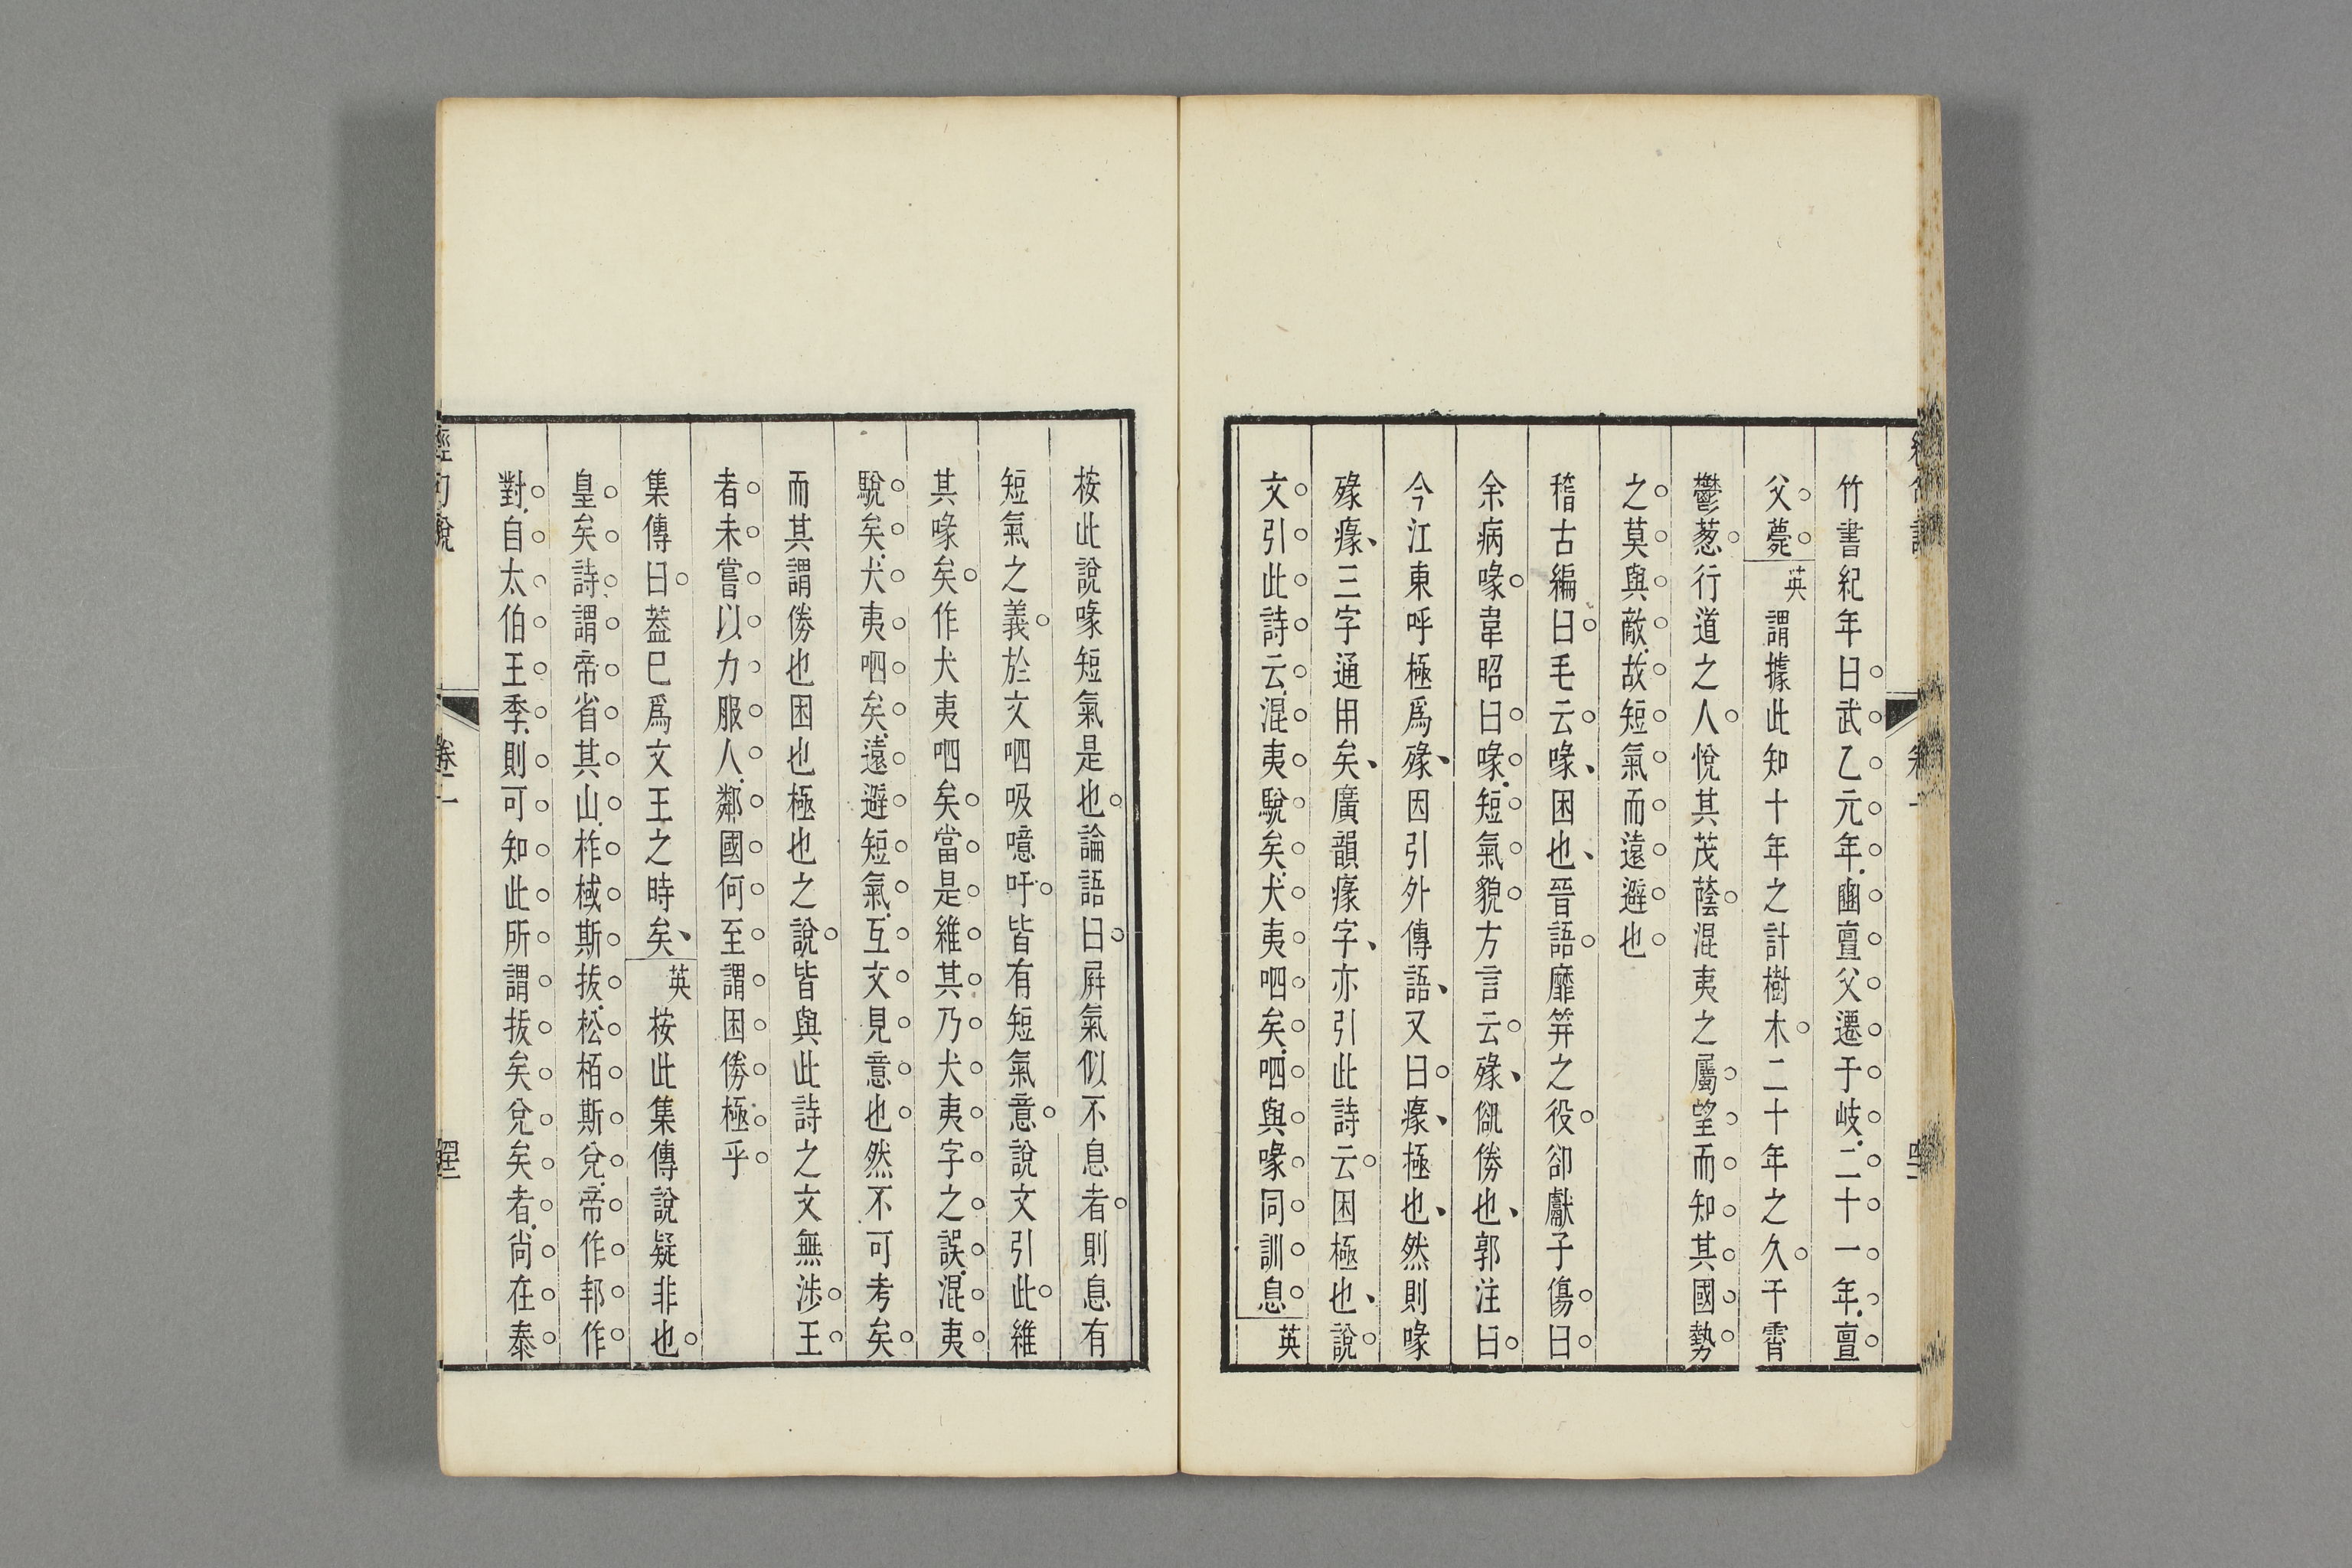 竹書紀年曰武乙元年豳亶父遷于岐二十一年亶
父薨英謂據此知十年之計樹木二十年之久干霄
鬱葱行道之人悅其茂蔭混夷之屬望而知其國勢
之莫與敵故短氣而遠避也
稽古編曰毛云喙困也晉語靡筓之役卻獻子傷曰
余病喙韋昭曰喙短氣貌方言云㱵㑉㑮也郭注曰
今江東呼極爲㱵因引外傳語又曰瘃極也然則喙
㱵瘃三字通用矣廣韻瘃字亦引此詩云困極也說
文引此詩云混夷駾矣犬夷呬矣呬與喙同訓息英
按此說喙短氣是也論語曰屛氣似不息者則息有
短氣之義於文呬吸噫吁皆有短氣意說文引此維
其喙矣作犬夷呬矣當是維其乃犬夷字之誤混夷
駾矣犬夷呬矣遠避短氣互文見意也然不可考矣
而其謂㑮也困也極也之說皆與此詩之文無涉王
者未嘗以力服人鄰國何至謂困㑮極乎
集傳曰蓋已爲文王之時矣英按此集傳說疑非也
皇矣詩謂帝省其山柞棫斯拔松栢斯兌帝作邦作
對自太伯王季則可知此所謂拔矣兌矣者尚在泰
卷二